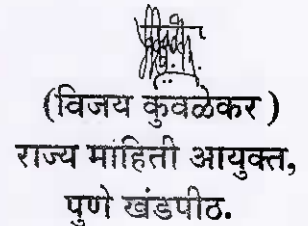 (विजय कुवळेकर )
राज्य मांहिती आयुक्त,
पुणे खंडपीठ.